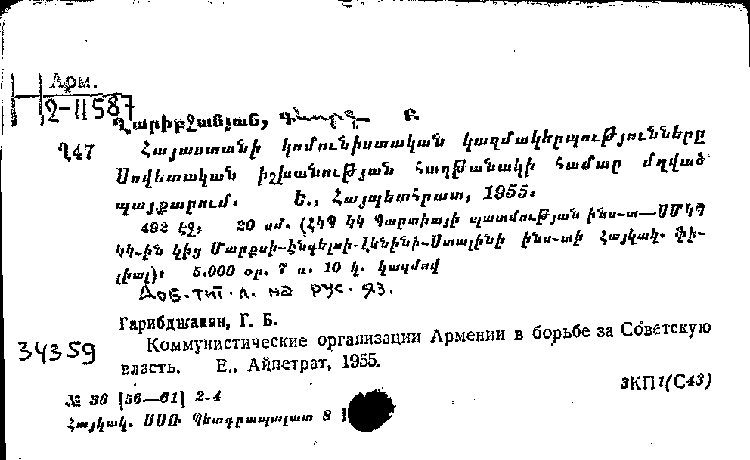 Арм.
2-11587
Ղարիբջանյան, Գևորգ Բ.
Ղ47 Հայաստանի կոմունիստական կազմակերպությունները
Սովետական իշխանության հաղթանակի համար մղված
պայքարում. Ե., Հայպետհրատ, 1955։
492 էջ; 20 սմ. (ՀԿՊ ԿԿ Պարտիայի պատմության ինս-տ—ՍՄԿՊ
ԿԿ-ին կից Մարքսի-Էնգելսի-Լենինի-Ստալինի ինս-տի Հայկակ. ֆի-
լիալ)։ 5.000 օր. 7 ռ. 10 կ. կազմով
Доб. тит. л. на рус. яз.
Гарибджанян, Г. Б.
34359 Коммунистические организации Армении в борьбе за Советскую
власть. Е., Айпетрат, 1955.
3КП1(С43)
№ 36 [56—61] 2-4
Հայկակ. ՍՍՌ Պետգրապալատ 8 1